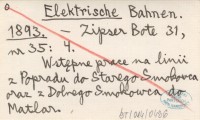 Elektrische Bahnen.
1893. — Zipser Bote 31,
nr 35: 4.
Wstępne prace na linii
z Popradu do Starego Smokowca
oraz z Dolnego Smokowca do
Matlar.